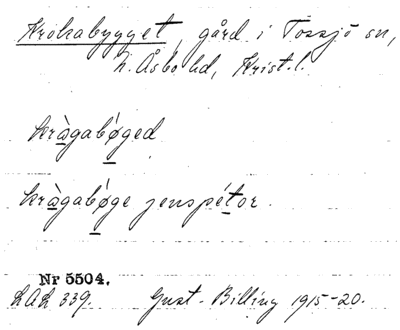 Krokabygget, gård i Tossjö sn,
N. Åsbo hd, Krist. l.
kràgabǿged
kràgabǿge jenspétor.
Nr 5504.
LAL 339. Gust. Billing 1915-20.